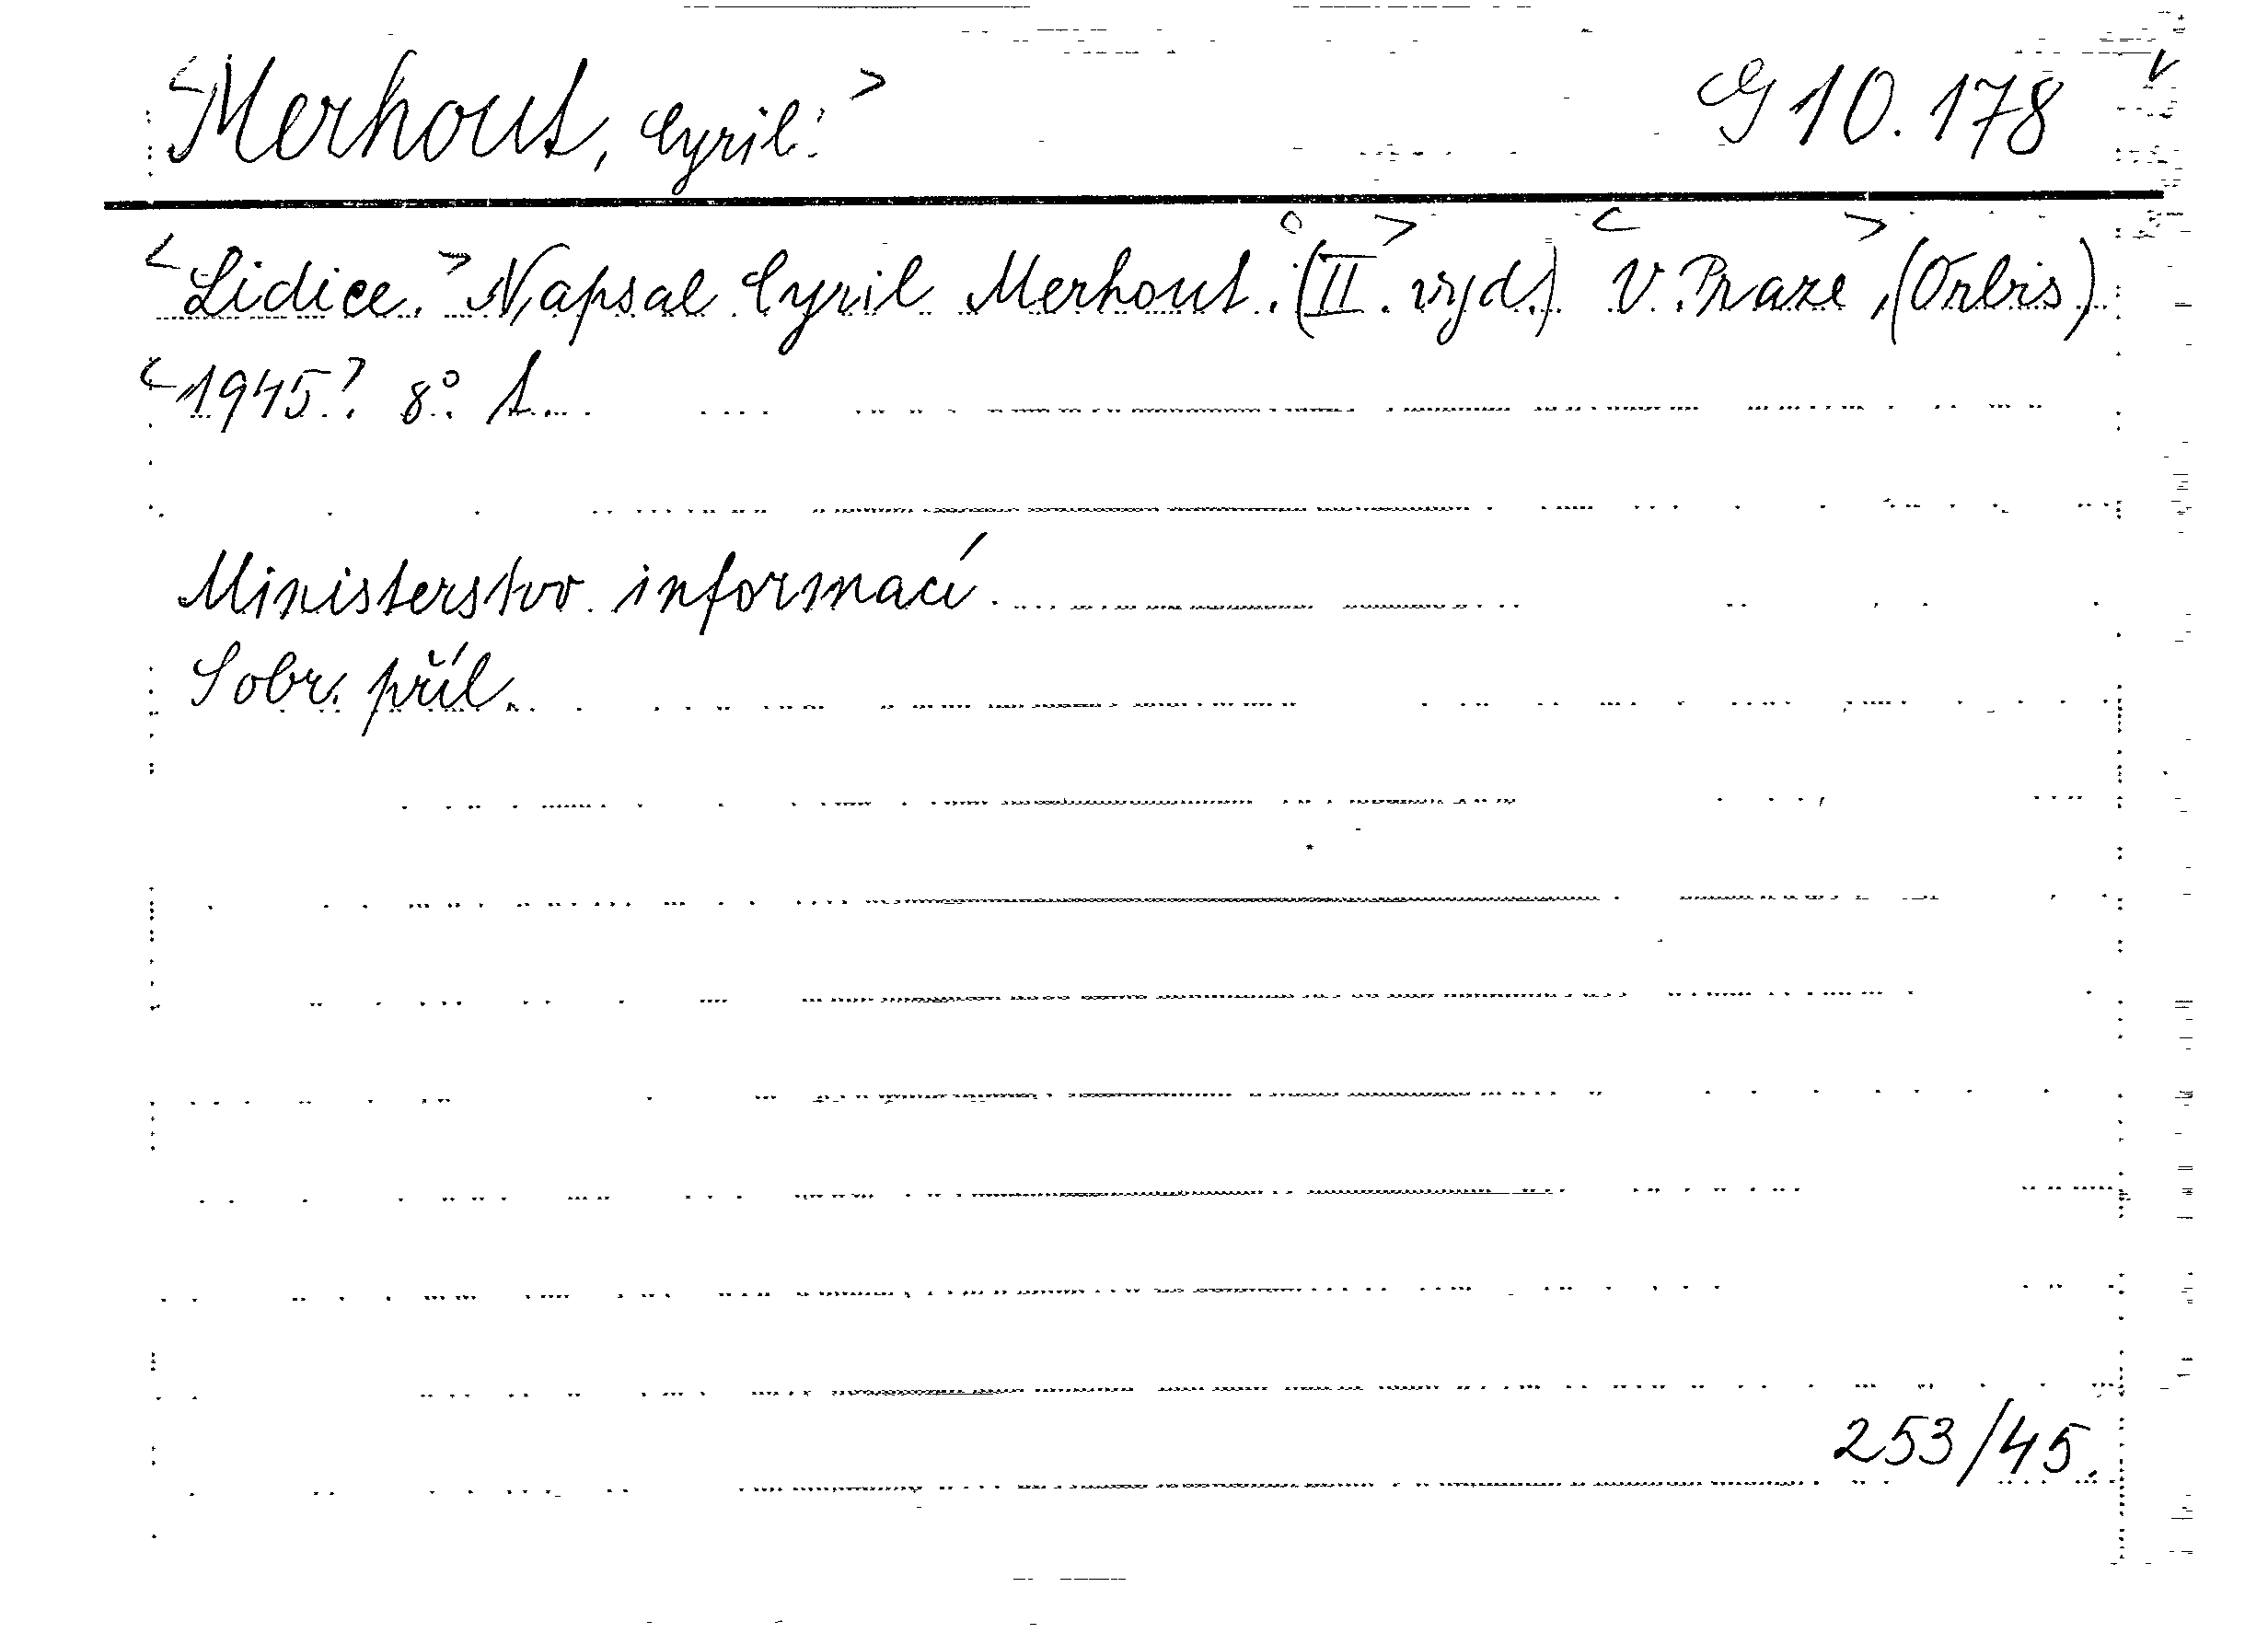 <Merhout, Cyril.> G 10.178
<Lidice.> Napsal Cyril Merhout. (II. vyd.) V Praze, (Orbis)
<1945? 8°.
Ministerstvo informací.
S obr. příl.
253/45.